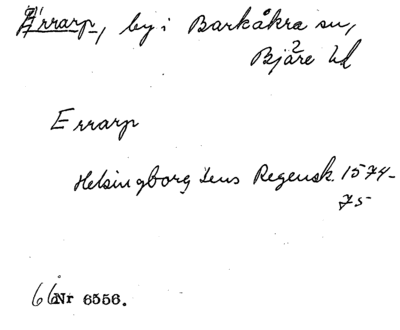 Ärrarp, by i Barkåkra sn,
Bjäre hd
Errarp
Helsingborg Lens Regensk. 1574-
75
66 Nr 6556.